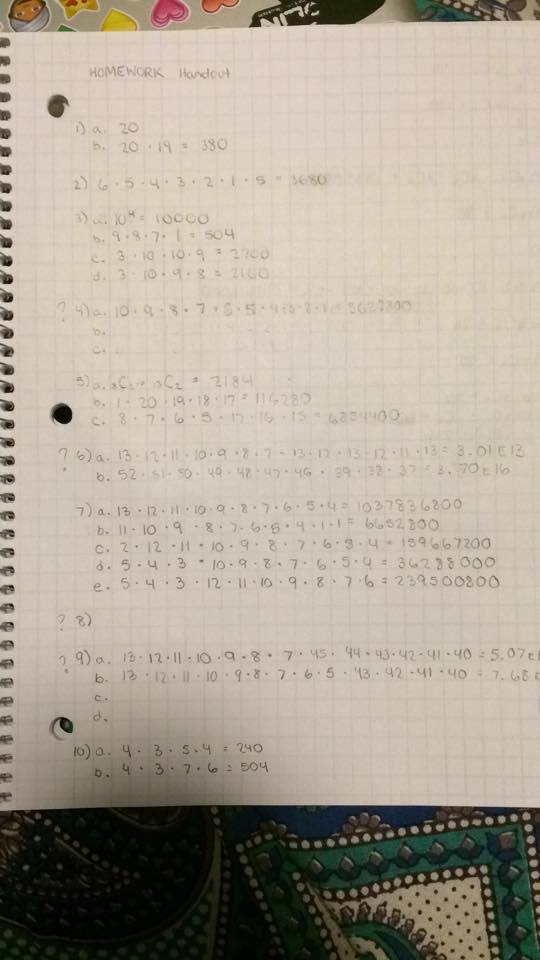 HOMEWORK Handout
1) a. 20
b. 20 · 19 = 380
2) 6 · 5 · 4 · 3 · 2 · 1 · 5 = 3680
3) a. 10⁴ = 10000
b. 9 · 8 · 7 · 1 = 504
c. 3 · 10 · 10 · 9 = 2700
d. 3 · 10 · 9 · 8 = 2160
? 4) a. 10 · 9 · 8 · 7 · 6 · 5 · 4 · 3 · 2 · 1 = 3628800
b.
c.
5) a. = 2184
b. 1 · 20 · 19 · 18 · 17 = 116280
c. 8 · 7 · 6 · 5 · 17 · 16 · 15 = 6854400
? 6) a. 13 · 12 · 11 · 10 · 9 · 8 · 7 · 13 · 12 · 13 · 12 · 11 · 13 = 3.01E13
b. 52 · 51 · 50 · 49 · 48 · 47 · 46 · 39 · 38 · 37 = 3.70E16
7) a. 13 · 12 · 11 · 10 · 9 · 8 · 7 · 6 · 5 · 4 = 1037836800
b. 11 · 10 · 9 · 8 · 7 · 6 · 5 · 4 · 1 · 1 = 6652800
c. 2 · 12 · 11 · 10 · 9 · 8 · 7 · 6 · 5 · 4 = 159667200
d. 5 · 4 · 3 · 10 · 9 · 8 · 7 · 6 · 5 · 4 = 36288000
e. 5 · 4 · 3 · 12 · 11 · 10 · 9 · 8 · 7 · 6 = 239500800
? 8)
? 9) a. 13 · 12 · 11 · 10 · 9 · 8 · 7 · 45 · 44 · 43 · 42 · 41 · 40 = 5.07E
b. 13 · 12 · 11 · 10 · 9 · 8 · 7 · 6 · 5 · 43 · 42 · 41 · 40 = 7.68
c.
d.
10) a. 4 · 3 · 5 · 4 = 240
b. 4 · 3 · 7 · 6 = 504